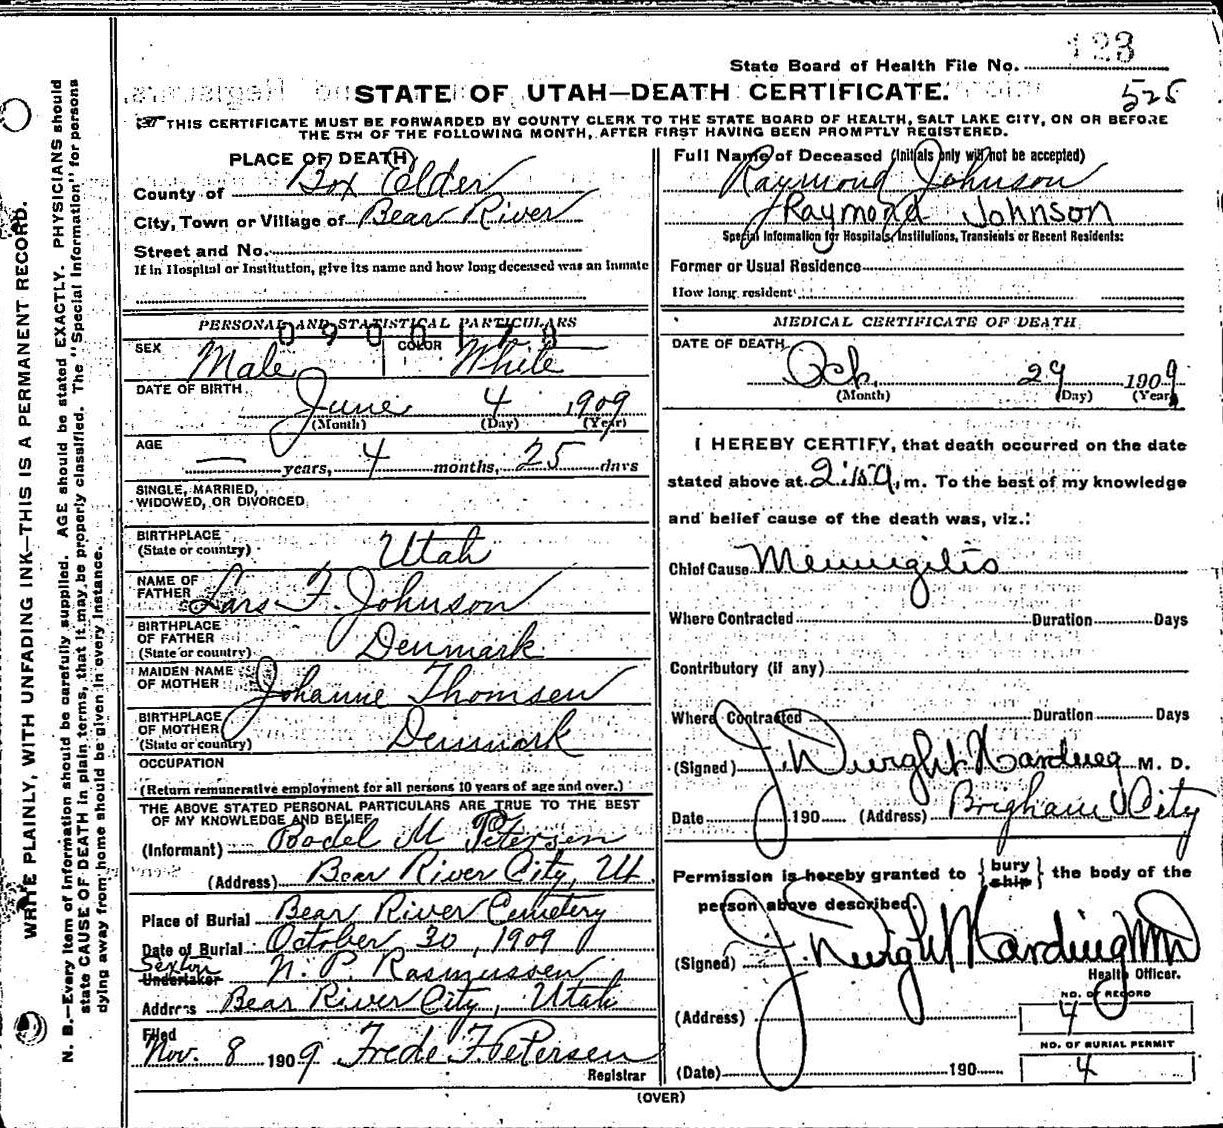 123
State Board of Health File No.
STATE OF UTAH—DEATH CERTIFICATE.
525
THIS CERTIFICATE MUST BE FORWARDED BY COUNTY CLERK TO THE STATE BOARD OF HEALTH, SALT LAKE CITY, ON OR BEFORE
THE 5TH OF THE FOLLOWING MONTH, AFTER FIRST HAVING BEEN PROMPTLY REGISTERED.
WRITE PLAINLY, WITH UNFADING INK—THIS IS A PERMANENT RECORD.
N. B.—Every item of information should be carefully supplied. AGE should be stated EXACTLY. PHYSICIANS should
state CAUSE OF DEATH in plain terms, that it may be properly classified. The "Special Information" for persons
dying away from home should be given in every instance.
PLACE OF DEATH
County of Box Elder
City, Town or Village of Bear River
Street and No.
If in Hospital or Institution, give its name and how long deceased was an inmate
PERSONAL AND STATISTICAL PARTICULARS
0900178
SEX Male COLOR White
DATE OF BIRTH June 4 1909
(Month) (Day) (Year)
AGE — years, 4 months, 25 days
SINGLE, MARRIED,
WIDOWED, OR DIVORCED
BIRTHPLACE
(State or country) Utah
NAME OF
FATHER Lars F. Johnson
BIRTHPLACE
OF FATHER
(State or country) Denmark
MAIDEN NAME
OF MOTHER Johanne Thomsen
BIRTHPLACE
OF MOTHER
(State or country) Denmark
OCCUPATION
(Return remunerative employment for all persons 10 years of age and over.)
THE ABOVE STATED PERSONAL PARTICULARS ARE TRUE TO THE BEST
OF MY KNOWLEDGE AND BELIEF
(Informant) Bodel M Petersen
(Address) Bear River City, Ut.
Place of Burial Bear River Cemetery
Date of Burial October 30, 1909
Sexton
Undertaker N. P. Rasmussen
Address Bear River City, Utah
Filed
Nov. 8 1909 Frede F. Petersen
Registrar
Full Name of Deceased (Initials only will not be accepted)
Raymond Johnson
Raymond Johnson
Special Information for Hospitals, Institutions, Transients or Recent Residents:
Former or Usual Residence
How long resident
MEDICAL CERTIFICATE OF DEATH
DATE OF DEATH
Oct. 29 1909
(Month) (Day) (Year)
I HEREBY CERTIFY, that death occurred on the date
stated above at 2:15 A. m. To the best of my knowledge
and belief cause of the death was, viz.:
Chief Cause Meningitis
Where Contracted Duration Days
Contributory (if any)
Where Contracted Duration Days
(Signed) J. Dwight Harding M. D.
Date 190 (Address) Brigham City
Permission is hereby granted to {bury ship} the body of the
person above described.
(Signed) J. Dwight Harding MD
Health Officer.
NO. OF RECORD
(Address) 4
NO. OF BURIAL PERMIT
(Date) 190 4
(OVER)